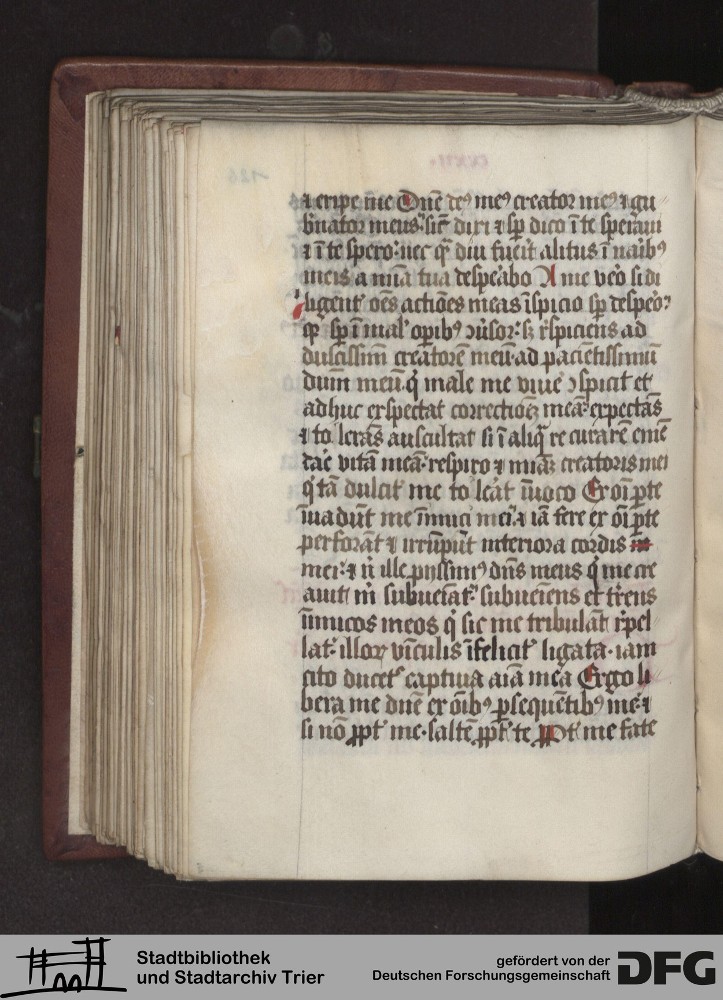 ⁊ eripe me Dn̄e deꝰ meꝰ creator meꝰ ⁊ gu
b̄nator meus sic̄ dixi ⁊ sp̄ dico ī te speraui
⁊ ī te spero: nec qͣ diu fuēit alitus ī naībꝰ
meis a mīa tua despēabo A me v̄o si di
ligent̄ oēs actiōes meas īspicio sp̄
sp̄ ī mal̓ opībꝰ
dulcissim̄ creatorē meū ad pacientissimū
dūm meū qͥ male me viuē ↄspicit et
adhuc exspectat correctiōeꝫ meā expectās
⁊ to lerās auscultat si ī aliqͣ re curarē emē
daē vitā meā respiro ⁊ mīaꝫ creatoris mei
qͥ tā dulcit̓ me to leāt īuoco Ex oī ꝑte
īuadūt me īimici mei ⁊ iā fere ex oī ꝑte
perforāt ⁊ irrūpūt interiora cordis
mei ⁊ n̄ ille pijssimꝰ dn̄s meus qͥ me cre
auit m̄ subueīat̓ subueīens et t̓rens
īimicos meos qͥ sic me tribulāt r̄pel
lat̓ illoꝝ vīculis īfelicit̓ ligata iam
cito ducet̓ captiua aīa mea Ergo li
bera me dn̄e ex oībꝰ ꝑsequētibꝰ me ⁊
si nō ꝓpt̓ me saltē ꝓpt̓ te Ꝓpt̓ me fate
Stadtbibliothek
und Stadtarchiv Trier
gefördert von der
Deutschen Forschungsgemeinschaft
DFG